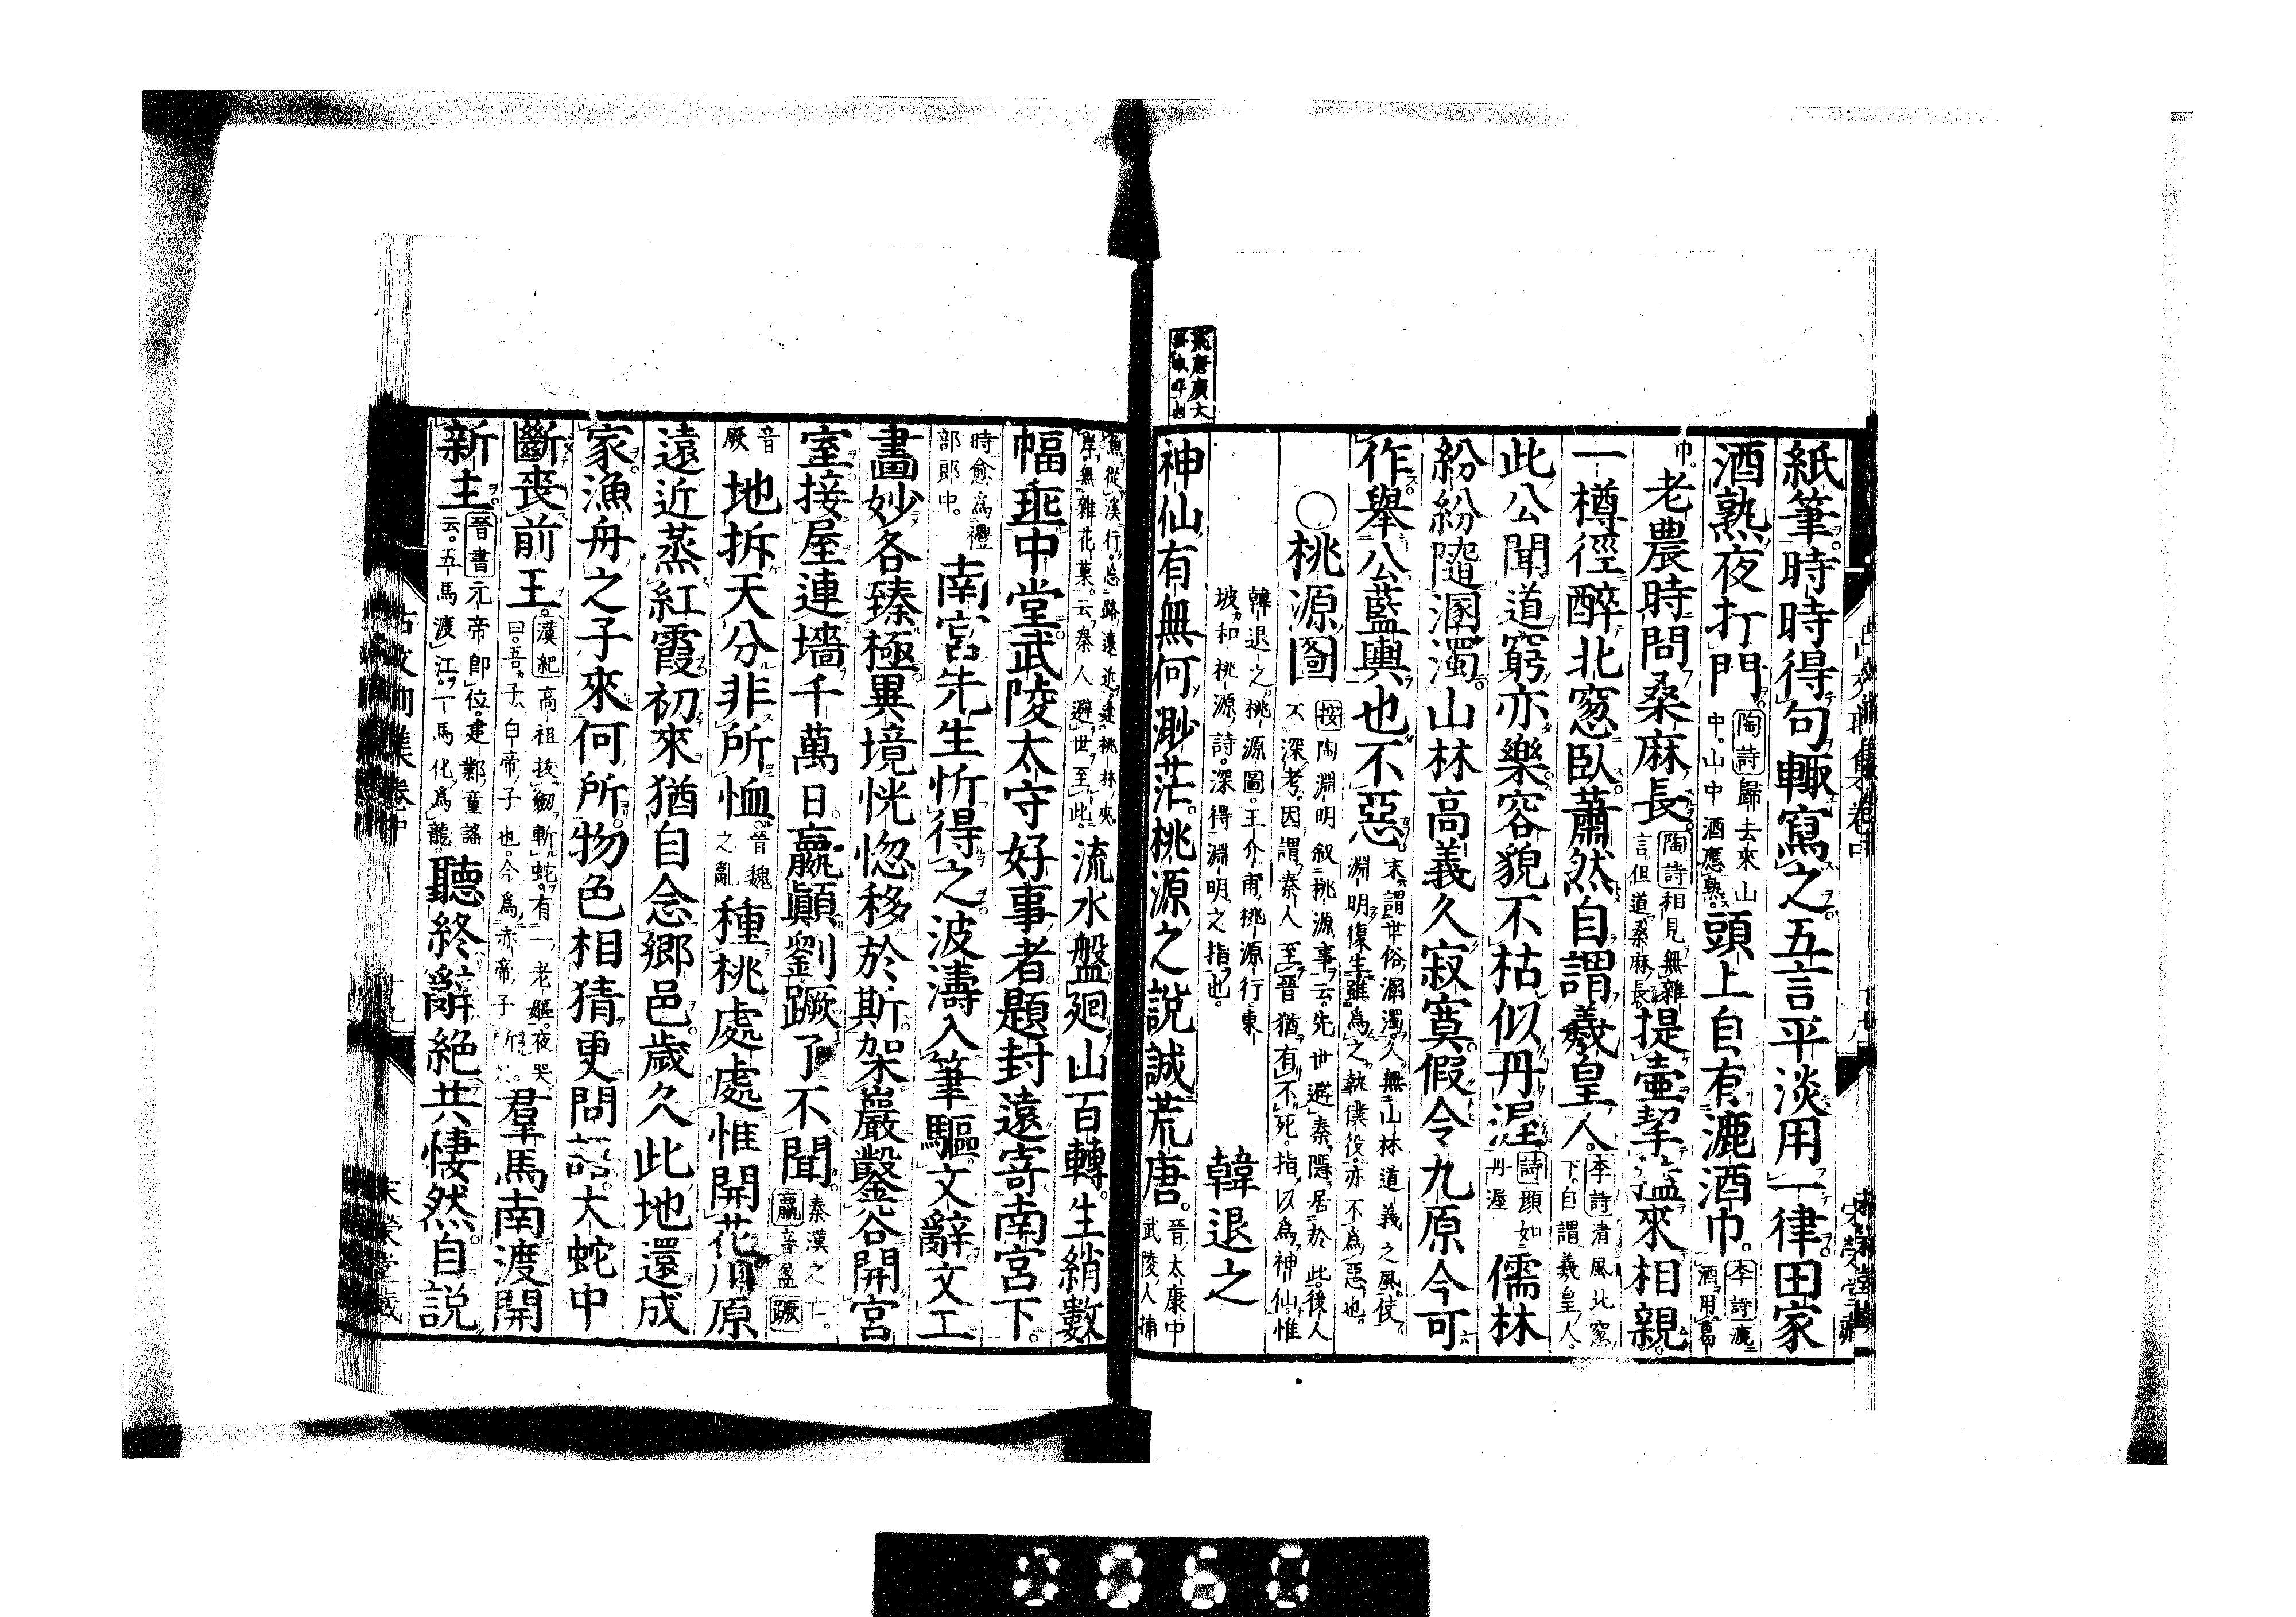 紙筆時時得句輙寫之五言平淡用一律田家
酒熟夜打門陶詩歸去來山中山中酒應熟頭上自有漉酒巾李詩漉酒用葛
巾老農時問桑麻長陶詩相見無雜言但道桑麻長提壷挈榼來相親
一樽徑醉北窓臥蕭然自謂羲皇人李詩清風北窓下自謂羲皇人
此公聞道窮亦樂容貌不枯似丹渥詩顔如丹渥儒林
紛紛隨溷濁山林高義久寂寞假令九原今可
作舉公藍輿也不惡末謂世俗溷濁久無山林道義之風使淵明復生雖為之執僕役亦不為惡也
○桃源圖按陶淵明叙桃源事云先世避秦隱居於此後人不深考因謂秦人至晉猶有不死指以為神仙惟
韓退之桃源圖王介甫桃源行東坡和桃源詩深得淵明之指也韓退之
神仙有無何渺茫桃源之説誠荒唐晉太康中武陵人捕
荒唐廣大
魚從溪行忘路遠近逢桃林夾岸無雜花菓云秦人避世至此流水盤廻山百轉生綃數
幅垂中堂武陵太守好事者題封遠寄南宮下
時愈為禮部郎中南宮先生忻得之波濤入筆驅文辭文工
畫妙各臻極異境恍惚移於斯架巖鑿谷開宮
室接屋連墻千萬日嬴顚劉蹶了不聞秦漢之亡嬴音盈蹶
音厥地拆天分非所恤晉魏之亂種桃處處惟開花川原
遠近蒸紅霞初來猶自念鄉邑歲久此地還成
家漁舟之子來何所物色相猜更問語大蛇中
斷喪前王漢紀高祖拔劔斬蛇有一老嫗夜哭曰吾子白帝子也今為赤帝子所羣馬南渡開
新主晉書元帝卽位建鄴童謠云五馬渡江一馬化為龍聽終辭絕共悽然自説
卷中
十九
0060